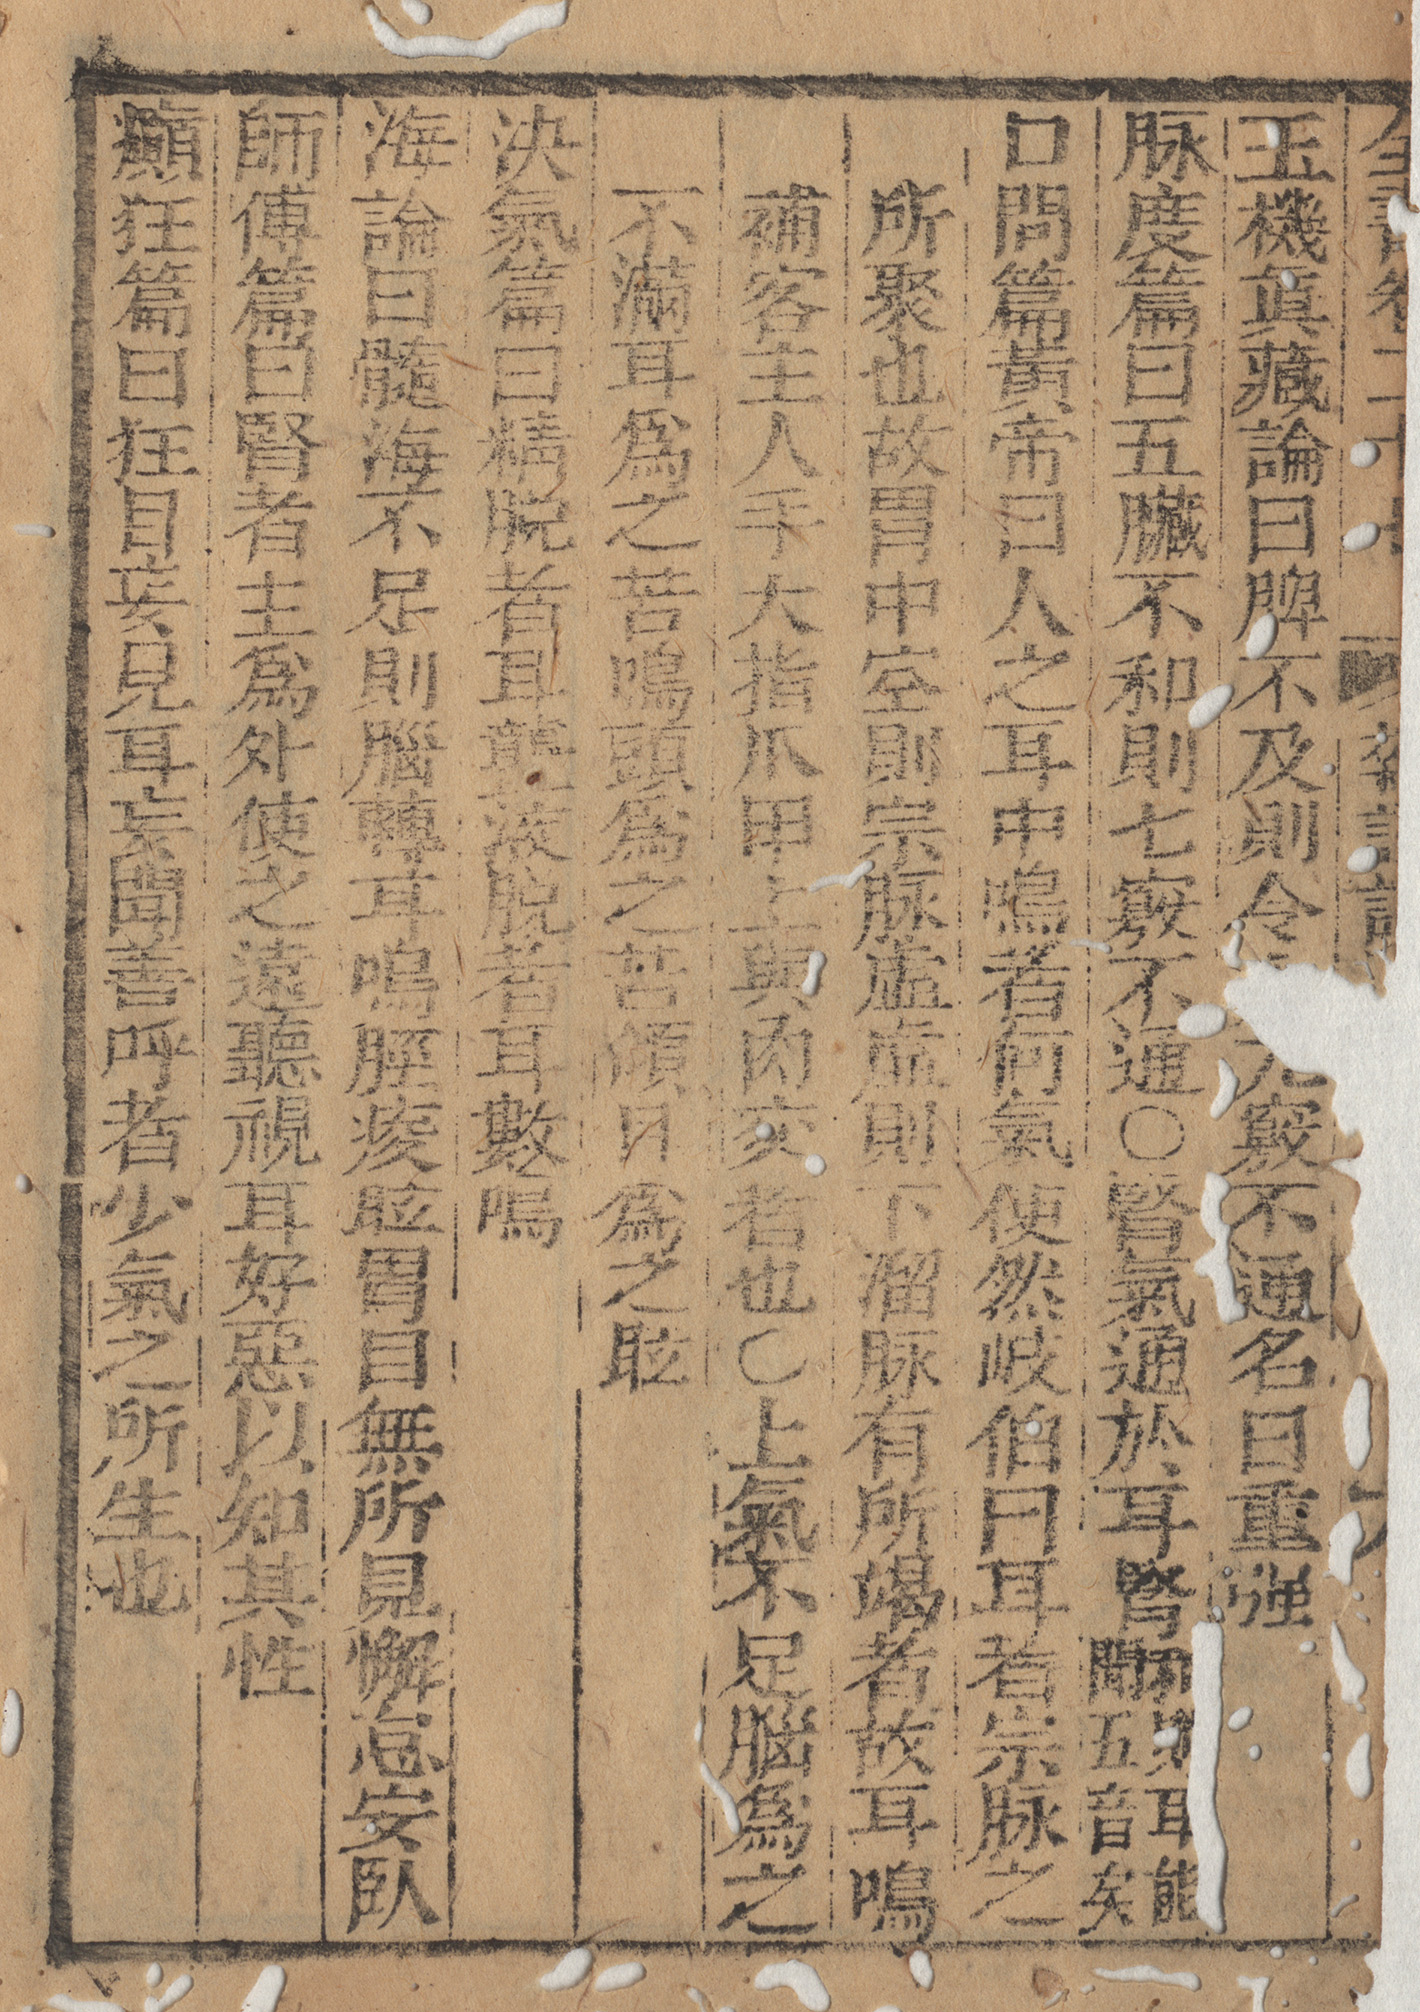 全書卷二十七 雜証謨
玉機眞藏論曰脾不及則令九竅不通名曰重强
脉度篇曰五臟不和則七竅不通○腎氣通於耳腎和則耳能聞五音矣
口問篇黃帝曰人之耳中鳴者何氣使然岐伯曰耳者宗脉之
所聚也故胃中空則宗脉虛虛則下溜脉有所竭者故耳鳴
補客主人手大指爪甲上與肉交者也○上氣不足腦爲之
不滿耳爲之苦鳴頭爲之苦傾目爲之眩
決氣篇曰精脫者耳聾液脫者耳數鳴
海論曰髓海不足則腦轉耳鳴脛痠眩冒目無所見懈怠安臥
師傅篇曰腎者主爲外使之遠聽視耳好惡以知其性
癲狂篇曰狂目妄見耳妄聞善呼者少氣之所生也